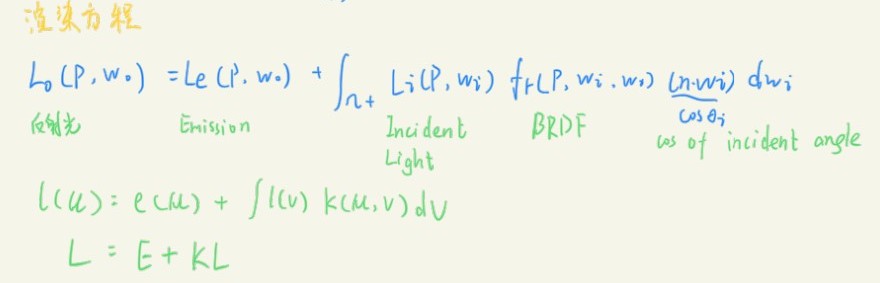 渲染方程
Lo(P, wo) = Le(P, wo) + ∫Ω+ Li(P, wi) fr(P, wi, wo) (n·wi) dwi
cosθi
反射光 Emission Incident Light BRDF cos of incident angle
l(u) = e(u) + ∫l(v) k(u, v) dv
L = E + KL